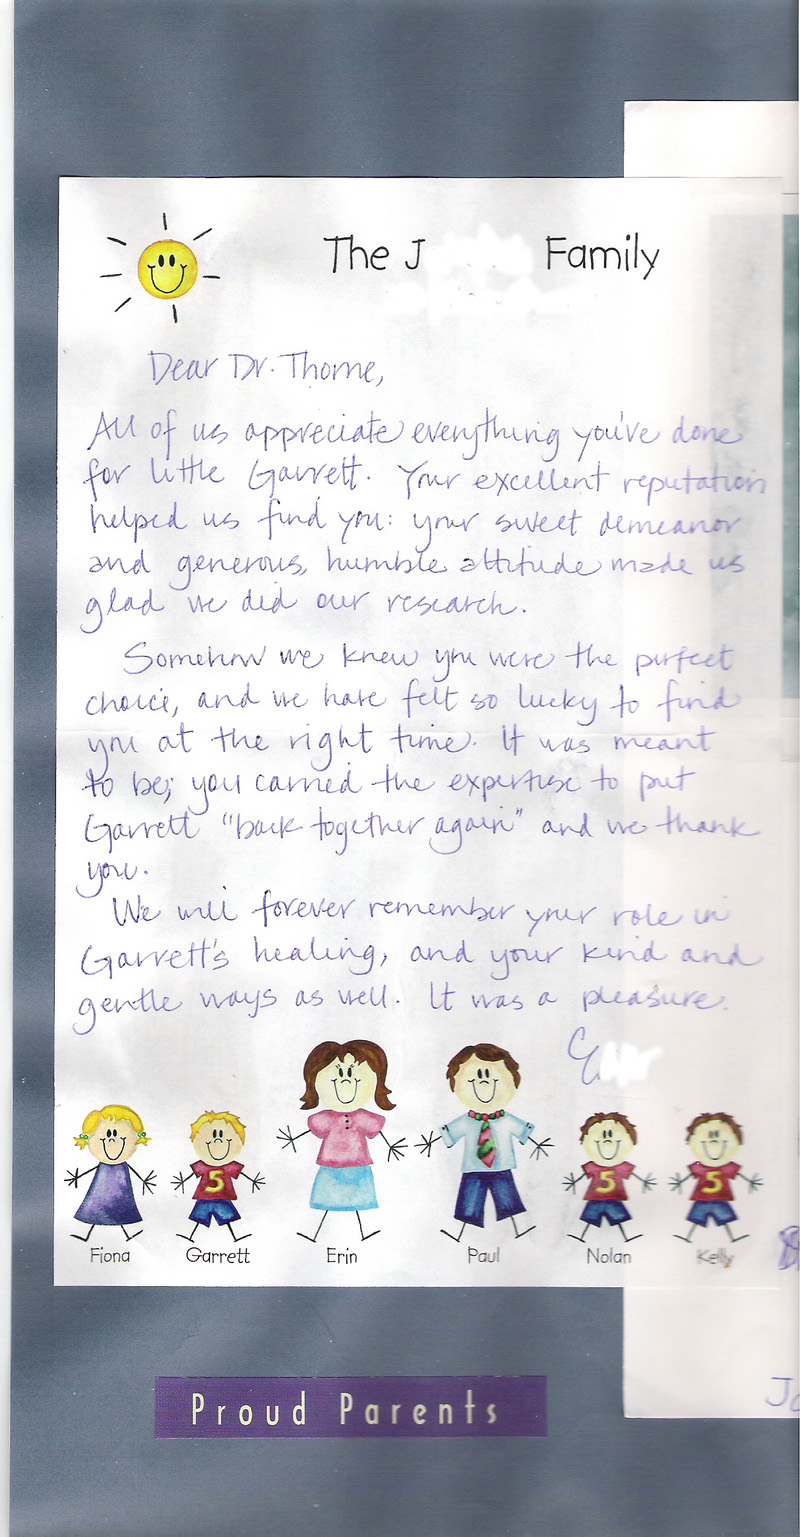 The J Family
Dear Dr. Thorne,
All of us appreciate everything you've done
for little Garrett. Your excellent reputation
helped us find you: your sweet demeanor
and generous, humble attitude made us
glad we did our research.
Somehow we knew you were the perfect
choice, and we have felt so lucky to find
you at the right time. It was meant
to be; you carried the expertise to put
Garrett "back together again" and we thank
you.
We will forever remember your role in
Garrett's healing, and your kind and
gentle ways as well. It was a pleasure.
Fiona Garrett Erin Paul Nolan Kelly
Proud Parents